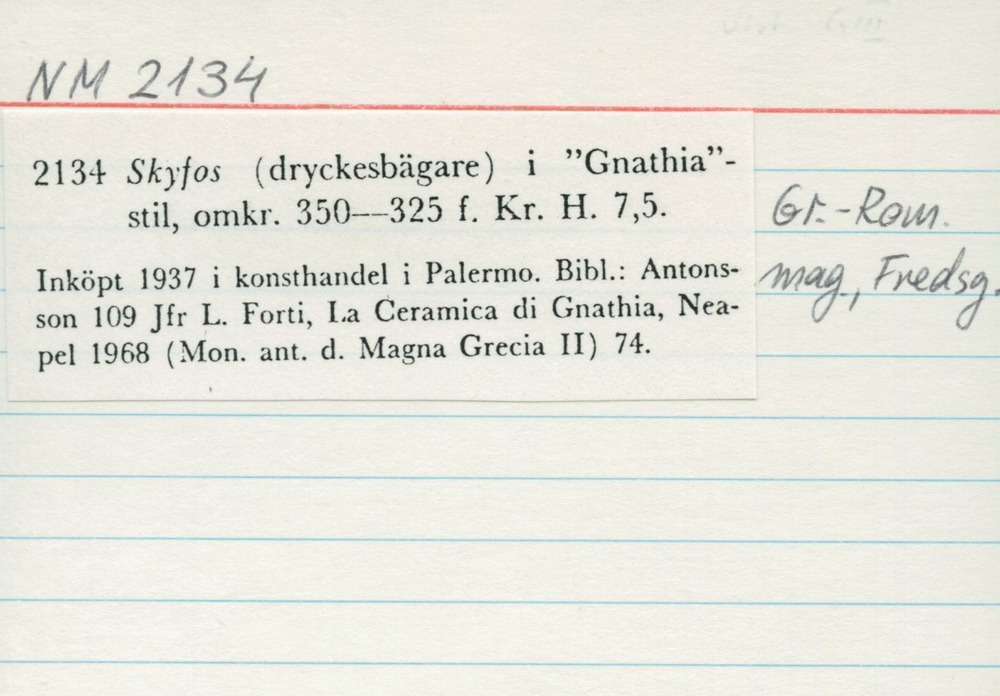 NM 2134
2134 Skyfos (dryckesbägare) i ”Gnathia”-
stil, omkr. 350—325 f. Kr. H. 7,5.
Inköpt 1937 i konsthandel i Palermo. Bibl.: Antons-
son 109 Jfr L. Forti, La Ceramica di Gnathia, Nea-
pel 1968 (Mon. ant. d. Magna Grecia II) 74.
Gr.-Rom.
mag., Fredsg.